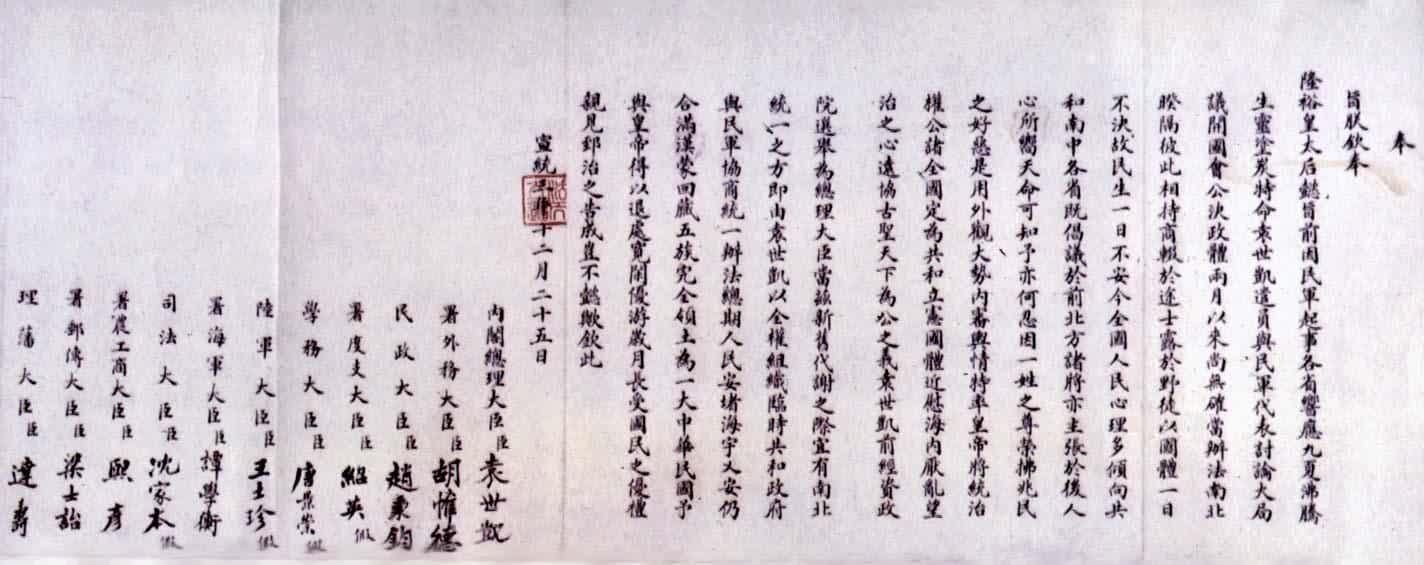 奉
旨朕欽奉
隆裕皇太后懿旨前因民軍起事各省響應九夏沸騰
生靈塗炭特命袁世凱遣員與民軍代表討論大局
議開國會公決政體兩月以來尚無確當辦法南北
睽隔彼此相持商輟於途士露於野徒以國體一日
不決故民生一日不安今全國人民心理多傾向共
和南中各省既倡議於前北方諸將亦主張於後人
心所嚮天命可知予亦何忍因一姓之尊榮拂兆民
之好惡是用外觀大勢內審輿情特率皇帝將統治
權公諸全國定為共和立憲國體近慰海內厭亂望
治之心遠協古聖天下為公之義袁世凱前經資政
院選舉為總理大臣當茲新舊代謝之際宜有南北
統一之方即由袁世凱以全權組織臨時共和政府
與民軍協商統一辦法總期人民安堵海宇乂安仍
合滿漢蒙回藏五族完全領土為一大中華民國予
與皇帝得以退處寬閒優游歲月長受國民之優禮
親見郅治之告成豈不懿歟欽此
宣統三年十二月二十五日
內閣總理大臣臣袁世凱
署外務大臣臣胡惟德
民政大臣臣趙秉鈞
署度支大臣臣紹英假
學務大臣臣唐景崇假
陸軍大臣臣王士珍假
署海軍大臣臣譚學衡
司法大臣臣沈家本假
署農工商大臣臣熙彥
署郵傳大臣臣梁士詒
理藩大臣臣達壽